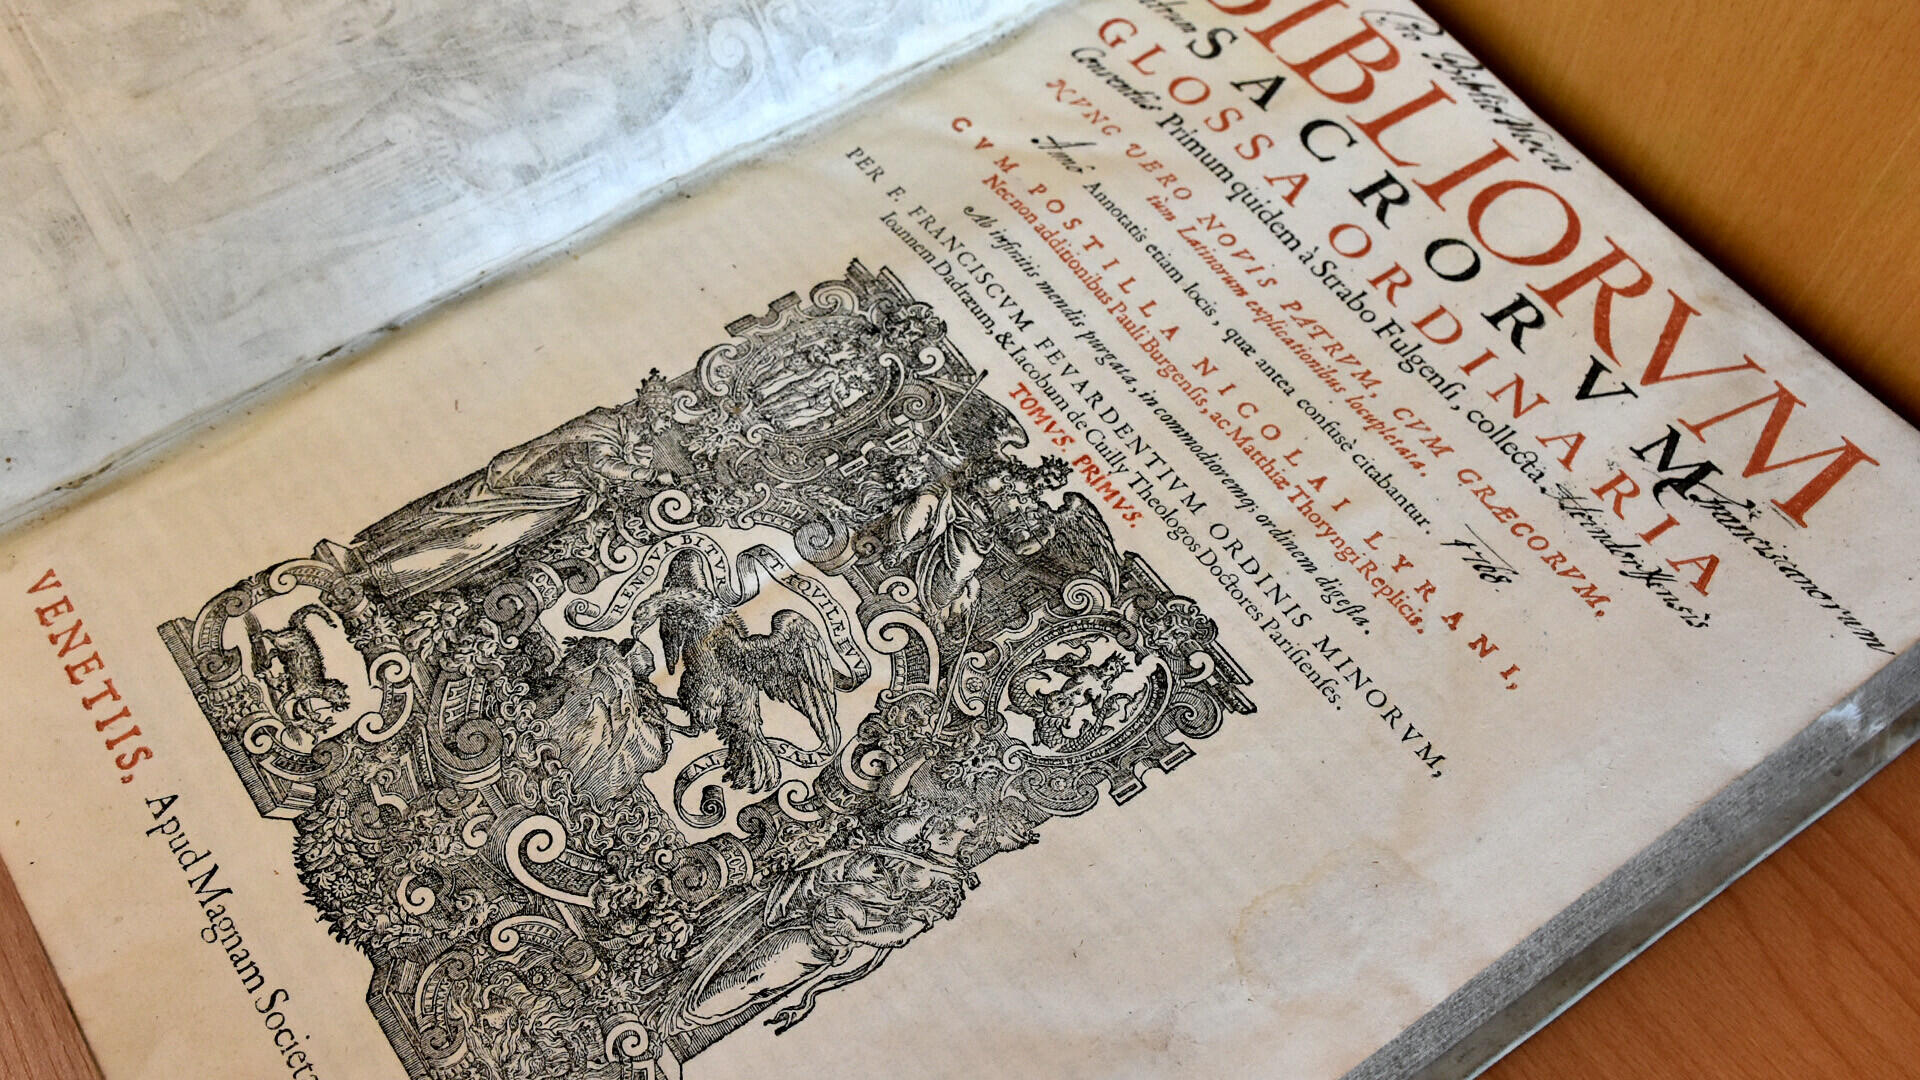 Ex Bibliothecâ
BIBLIORVM
SACRORVM
Franciscanorum
GLOSSA ORDINARIA
Conventûs
Primum quidem à Strabo Fulgensi, collecta.
NVNC VERO NOVIS PATRVM, CVM GRÆCORVM,
tùm Latinorum explicationibus locupletata.
Annô
Annotatis etiam locis, quæ antea confusè citabantur.
1768.
CVM POSTILLA NICOLAI LYRANI,
Nec non additionibus Pauli Burgensis, ac Matthiæ Thoryngi Replicis.
Ab infinitis mendis purgata, in commodioremq; ordinem digesta.
PER F. FRANCISCVM FEVARDENTIVM ORDINIS MINORVM,
Ioannem Dadræum, & Iacobum de Cuilly Theologos Doctores Parisienses.
TOMVS. PRIMVS.
RENOVABITVR
VT AQVILE IVV
ENTVS
TVA
VENETIIS,
Apud Magnam Societa